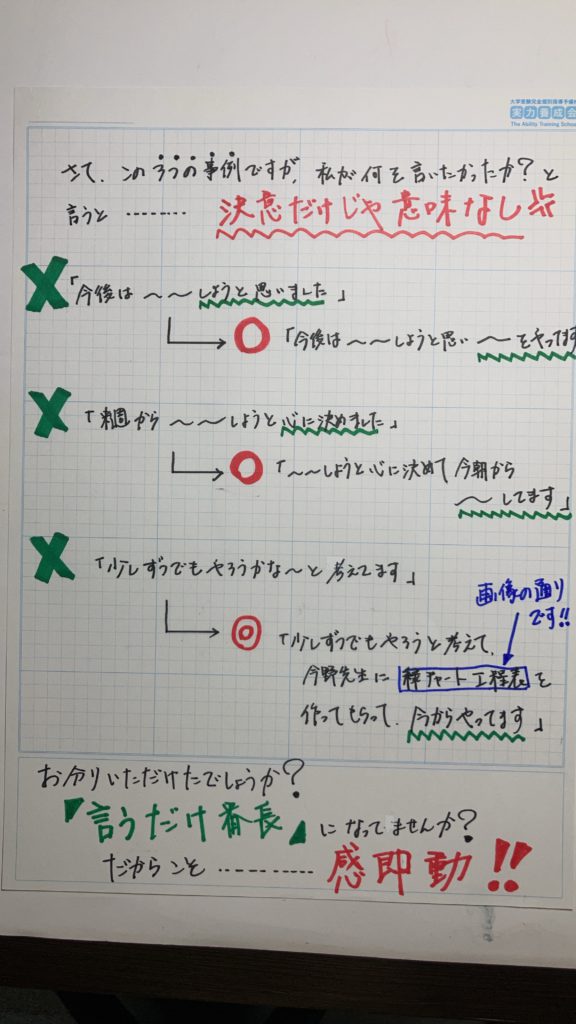 大学受験完全個別指導予備校
実力養成会
The Ability Training School
さて、この3つの事例ですが、私が何を言いたかったか?と
言うと ‥‥‥‥ 決意だけじゃ意味なし
X「今後は 〜〜しようと思いました」
「今後は 〜〜しようと思い 〜をやってます
X「来週から 〜〜しようと心に決めました」
「〜〜しようと心に決めて今朝から
〜してます」
X「少しずつでもやろうかな〜と考えてます」
画像の通り
です!!
「少しずつでもやろうと考えて、
今野先生に 稗チャート工程表 を
作ってもらって、今からやってます」
お分りいただけたでしょうか?
『言うだけ番長』になってませんか?
だからこそ ‥‥‥‥ 感即動!!